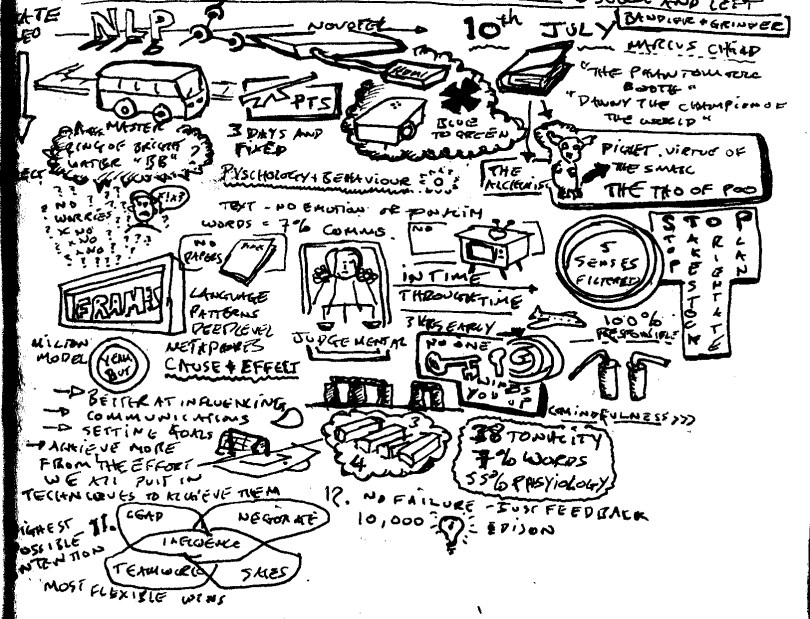 NLP
NOVOTEL
10th JULY
BANDLER + GRINDER
MARCUS CHILD
"THE PHANTOM
BOOTH"
"DANNY THE CHAMPION OF
THE WORLD"
PTS
3 DAYS AND
FIXED
BLUE
TO GREEN
MASTER
RING OF BRIGHT
WATER "BB"
PYSCHOLOGY + BEHAVIOUR
THE
ALCHEMIST
PIGLET. VIRTUE OF
THE SMALL
THE TAO OF POO
? NO ?
WORRIES
X NO
X NO
X NO
TEXT - NO EMOTION OR
WORDS = 7% COMMS.
NO
PAPERS
NO
IN TIME
THROUGH TIME
5
SENSES
FILTERED
STOP
STOP
TAKE STOCK
ORIGNTATE
PLAN
FRAMES
LANGUAGE
PATTERNS
DEEP LEVEL
METAPHORS
CAUSE + EFFECT
JUDGEMENTAL
3 HRS EARLY
100%
RESPONSIBLE
MILTON
MODEL
YEAH
BUT
NO ONE
WINDS
YOU UP
MINDFULNESS >>>
→ BETTER AT INFLUENCING
→ COMMUNICATIONS
→ SETTING GOALS
→ ACHIEVE MORE
FROM THE EFFORT
WE ALL PUT IN
TECHNIQUES TO ACHIEVE THEM
3
4
38 TONACITY
7% WORDS
55% PHYSIOLOGY
HIGHEST
POSSIBLE
INTENTION
11.
LEAD
NEGOTIATE
INFLUENCE
TEAMWORK
SALES
MOST FLEXIBLE WINS
12. NO FAILURE - JUST FEEDBACK
10,000
EDISON